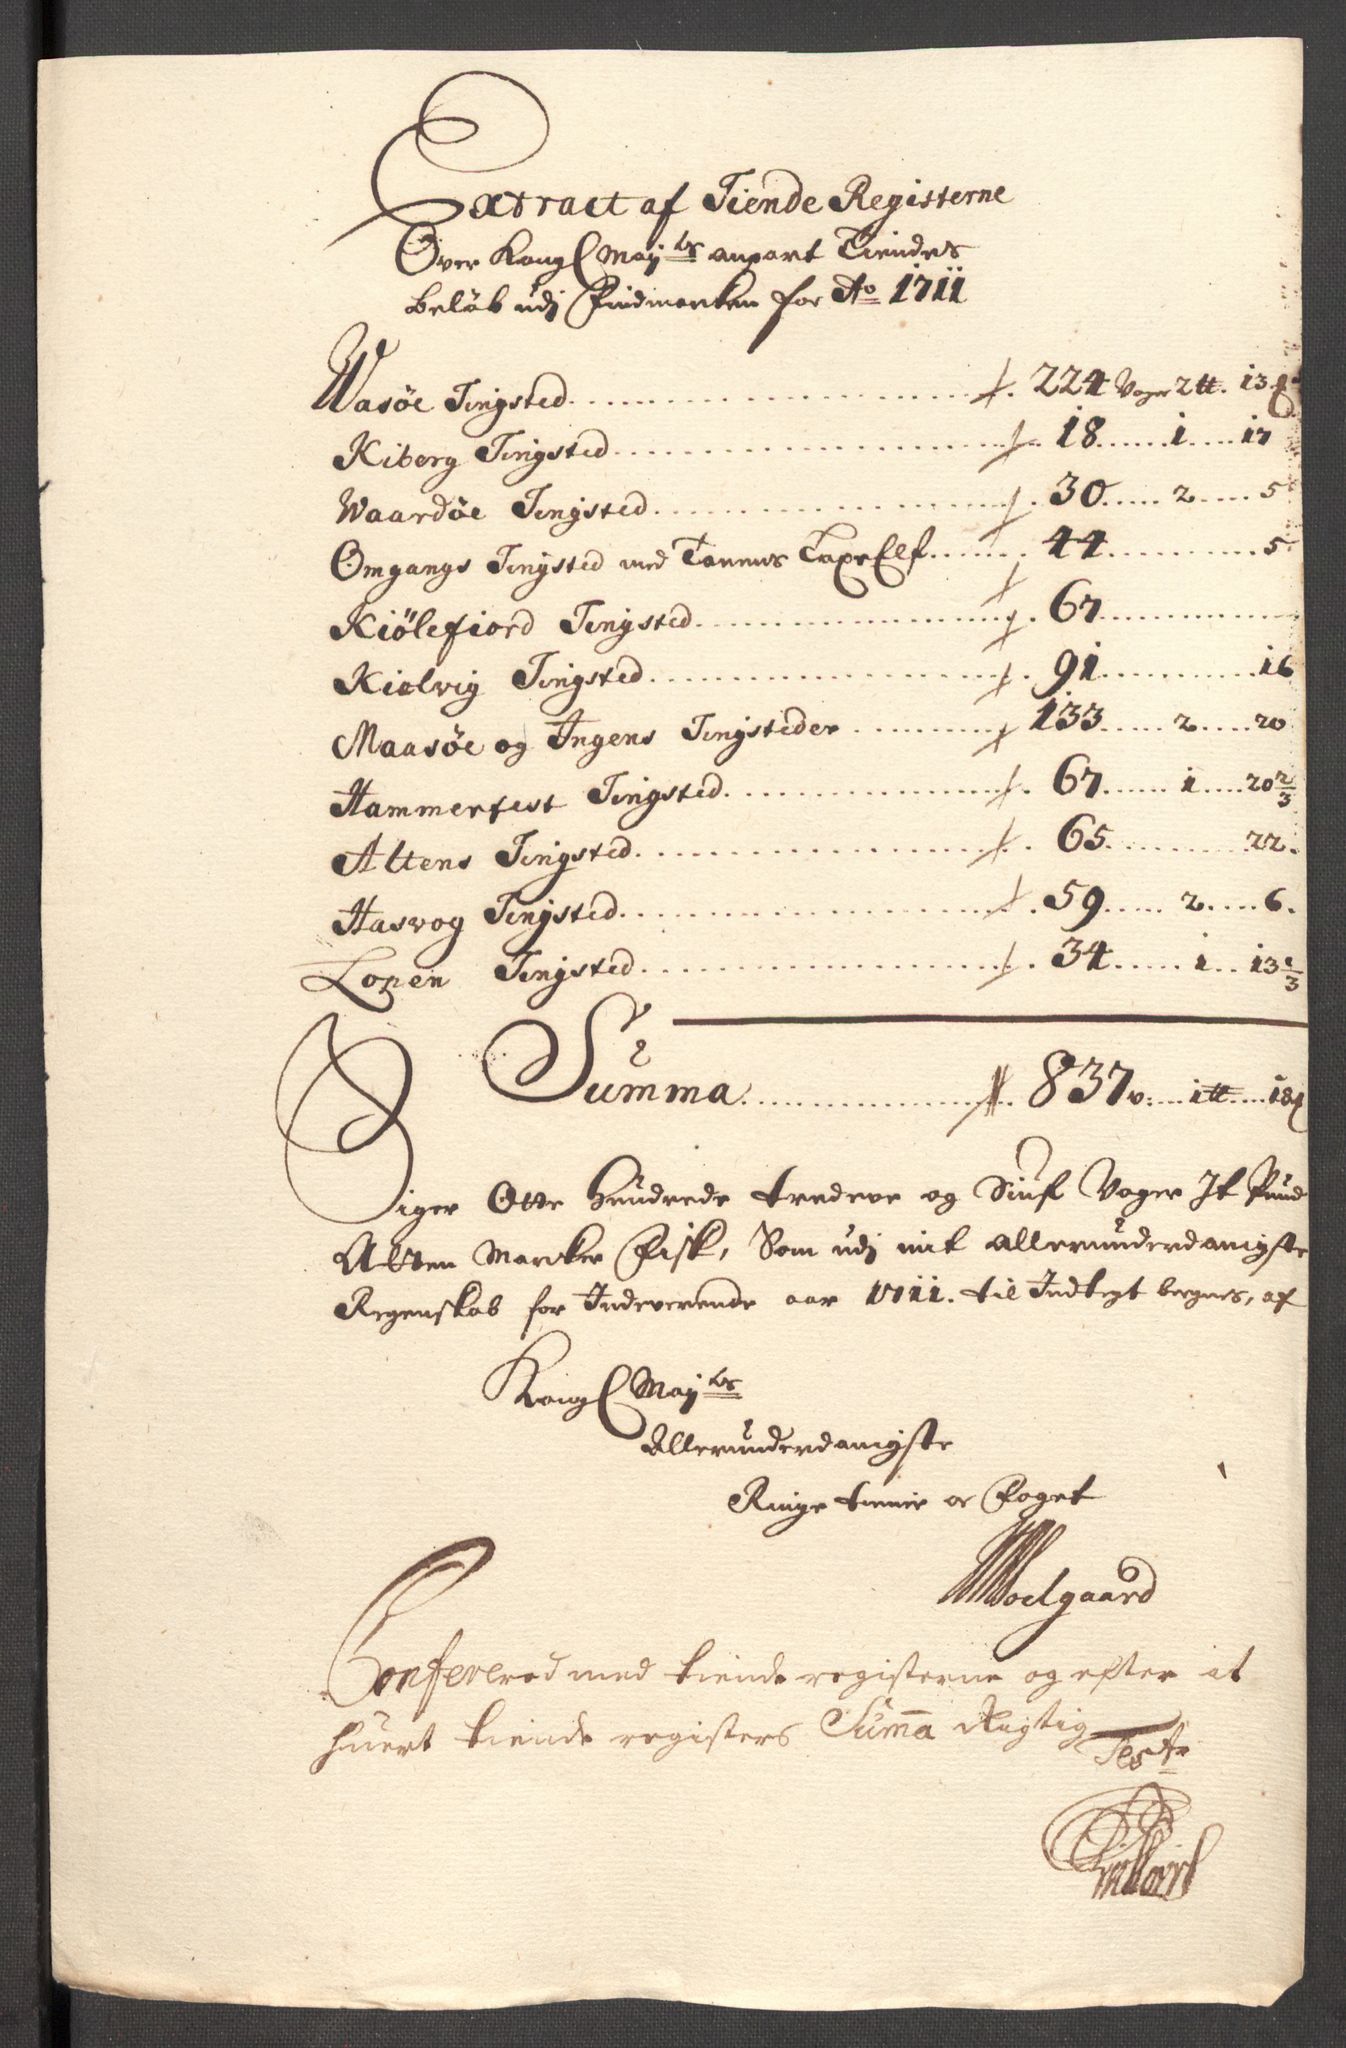 Extract af Tiende Registerne
Over Kongl Mayts anpart Tiendes
beløb udj Findmarken for Ao 1711
Wasøe Tingsted 224 Voger 2 tt. 13
Kiberg Tingsted 18 1 17
Waardøe Tingsted 30 2 5
Omgangs Tingsted med Tannes Elf 44 5
Kiölefiord Tingsted 67
Kielvig Tingsted 91 16
Maasöe og Ingens Tingsteder 133 2 20
Hammerfest Tingsted 67 1 20 2/3
Altens Tingsted 65 22
Hasvog Tingsted 59 2 6
Loppen Tingsted 34 1 13 1/3
Summa 837 v. 1 tt 18
Siger Otte Hundrede tredeve og Siuf Voger It Pund
Atten Marcker Fisk, Som udj mit allerunderdanigste
Regenskab for Indeverende aar 1711. til Indtegt beregnes, af
Kongl Mayts
Allerunderdanigste
Ringe tienner oc Foget
Soelgaard
Conferered med tiende registerne og efter at
huert tiende registers Suma Rigtig
Teste